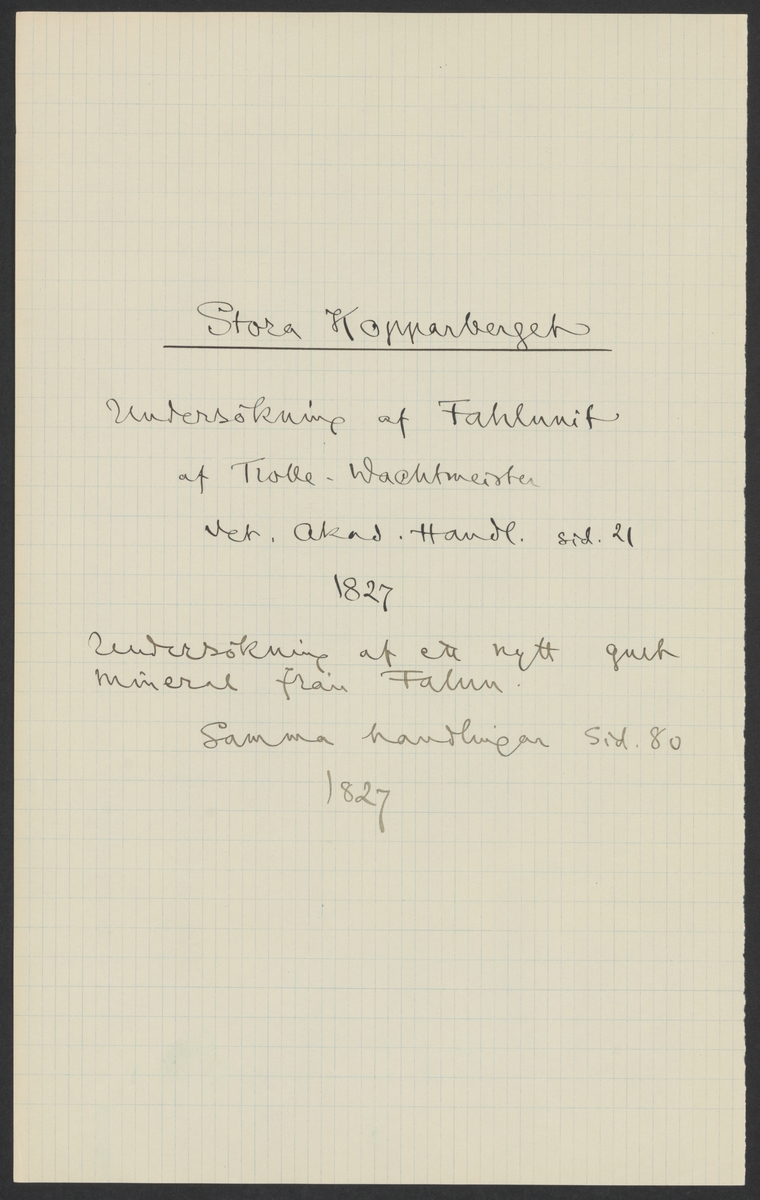 Stora Kopparberget
Undersökning af Fahlunit
af Trolle-Wachtmeister
Vet. Akad. Handl. sid. 21
1827
Undersökning af ett nytt gult
mineral från Falun.
Samma handlingar Sid. 80
1827